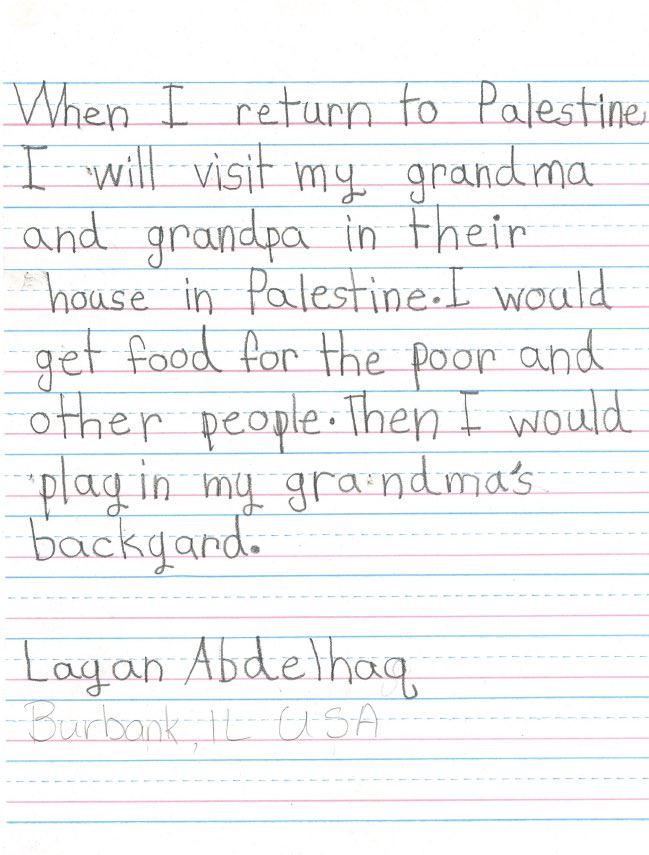 When I return to Palestine
I will visit my grandma
and grandpa in their
house in Palestine. I would
get food for the poor and
other people. Then I would
play in my grandma's
backyard.
Layan Abdelhaq
Burbank, IL USA